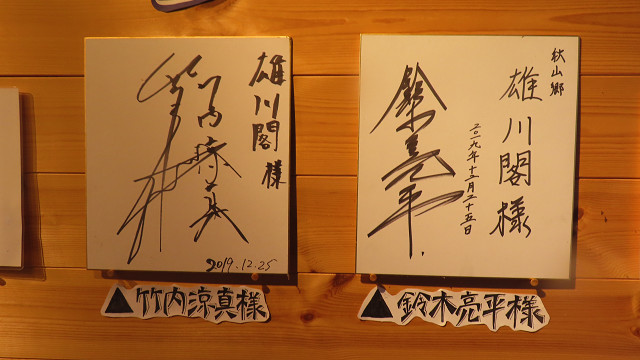 雄川閣様
竹内涼真
2019.12.25
▲竹内涼真様
秋山郷
雄川閣様
二〇一九年十二月二十五日
鈴木亮平
▲鈴木亮平様